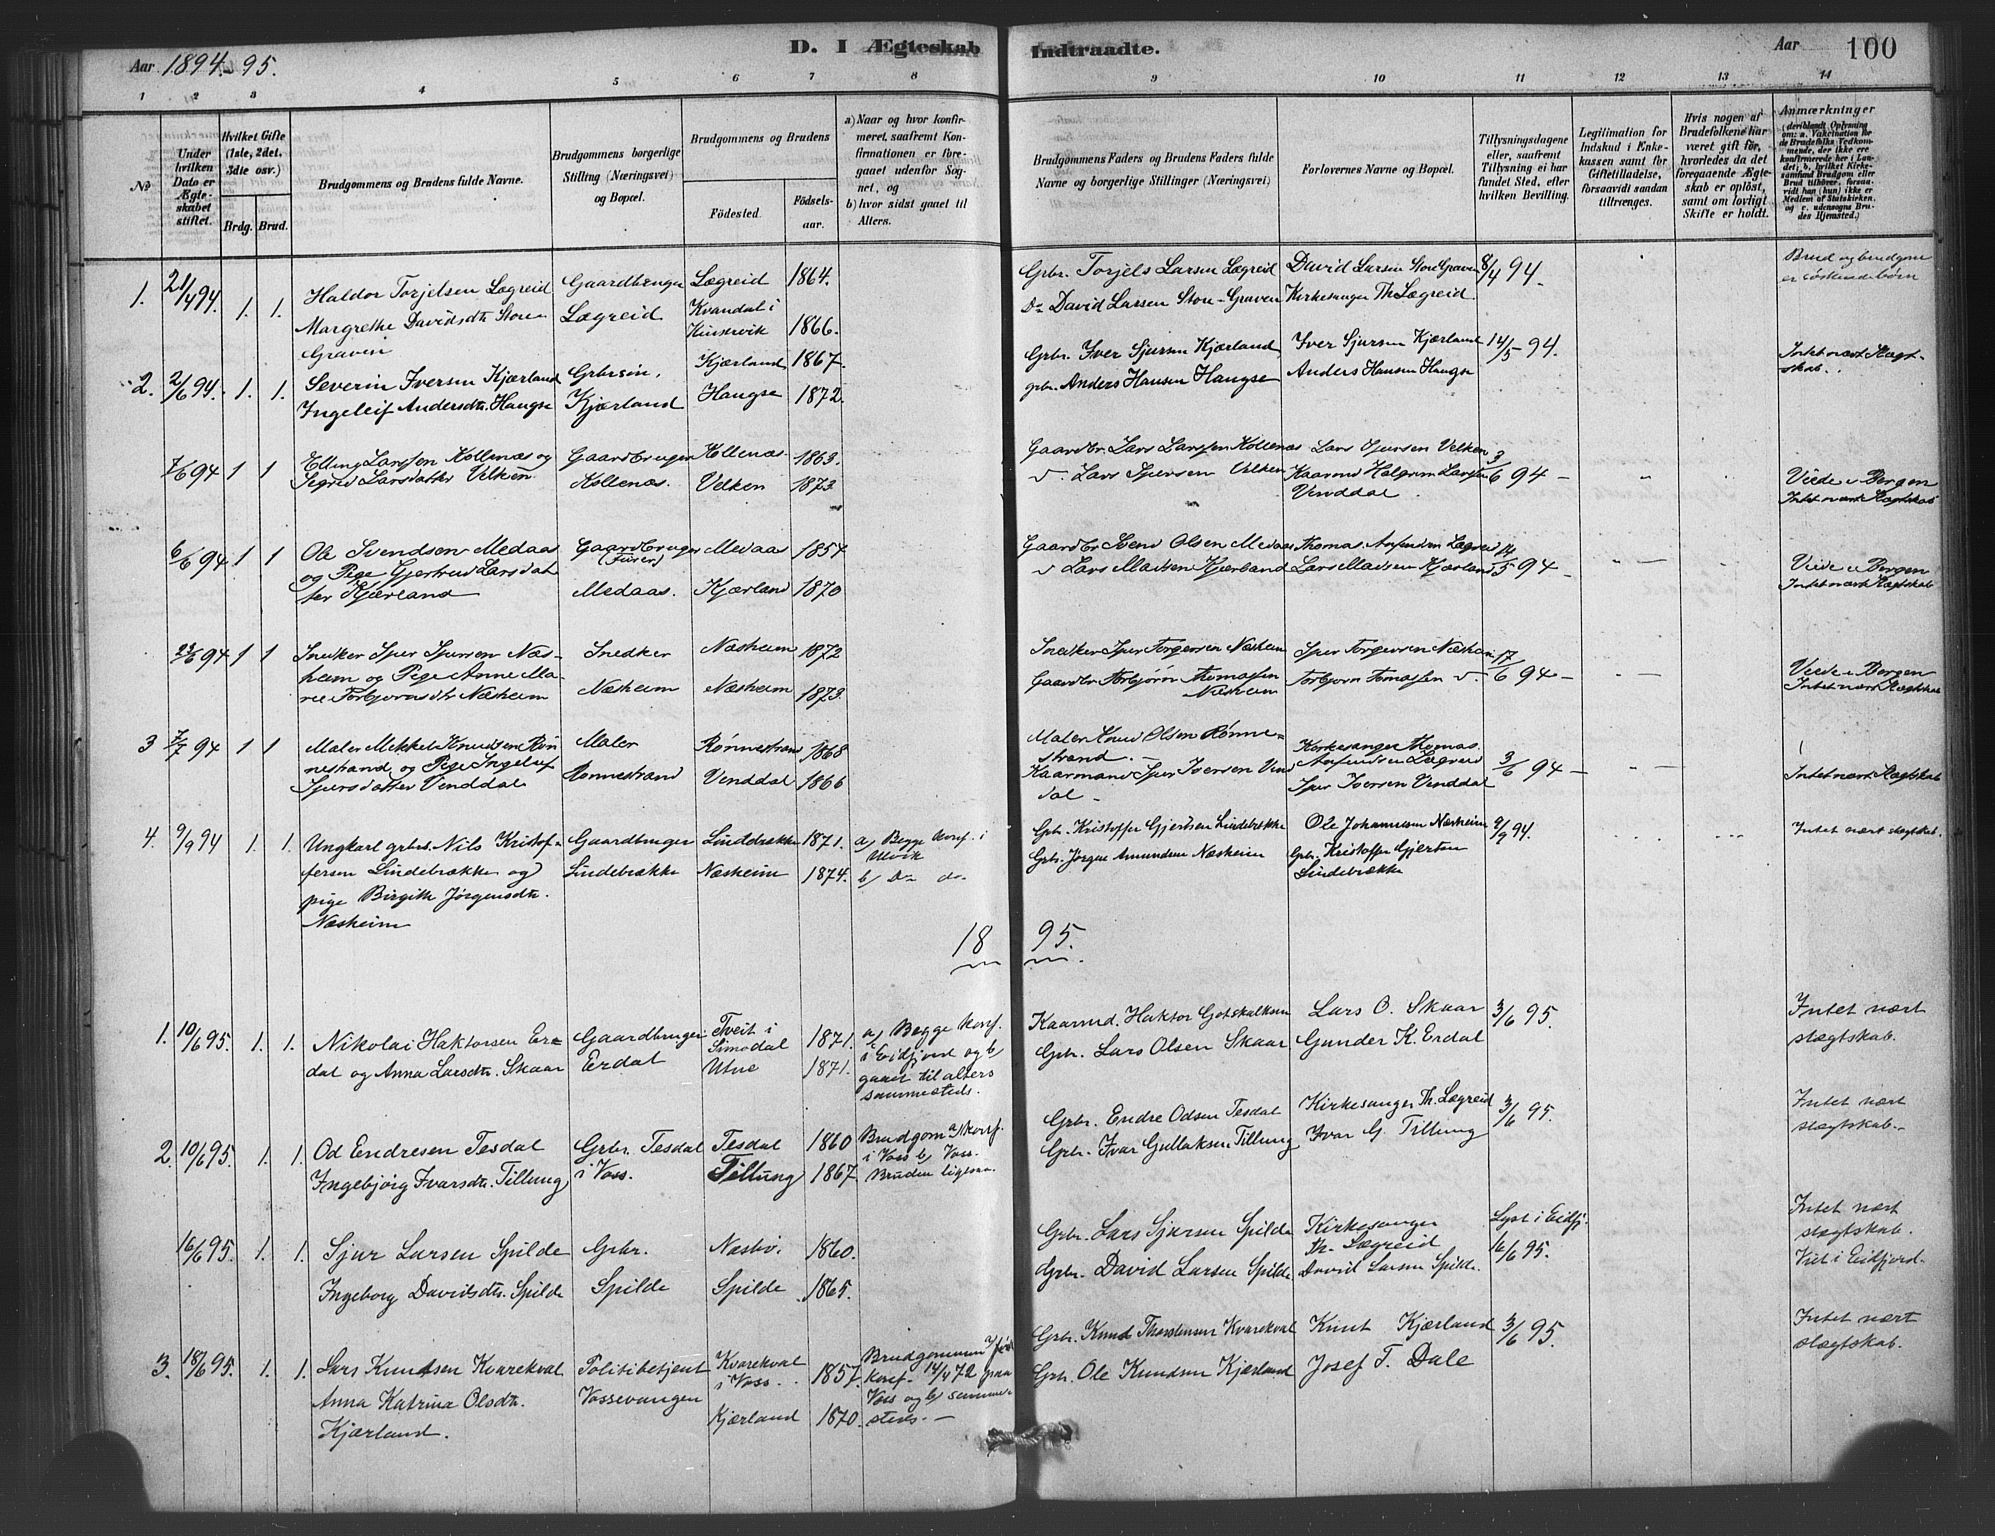 Aar 1894-95.
D. I Ægteskab Indtraadte.
Aar 100
1 2 3 4 5 6 7 8 9 10 11 12 13 14
No
Under hvilken Dato er Ægteskabet stiftet.
Hvilket Gifte (1ste, 2det, 3die osv.)
Brdg. Brud.
Brudgommens og Brudens fulde Navne.
Brudgommens borgerlige Stilling (Næringsvei) og Bopæl.
Brudgommens og Brudens
Fødested.
Fødselsaar.
a) Naar og hvor konfirmeret, saafremt Konfirmationen er foregaaet udenfor Sognet, og
b) hvor sidst gaaet til Alters.
Brudgommens Faders og Brudens Faders fulde Navne og borgerlige Stillinger (Næringsvei)
Forlovernes Navne og Bopæl.
Tillysningsdagene eller, saafremt Tillysning ei har fundet Sted, efter hvilken Bevilling.
Legitimation for Indskud i Enkekassen samt for Giftetilladelse, forsaavidt sandan tiltrænges.
Hvis nogen af Brudefolkene har været gift før, hvorledes da det foregaaende Ægteskab er opløst, samt om lovligt Skifte er holdt.
Anmærkninger
(deriblandt Oplysning om: a. Vakcination for de Brudefolks Vedkommende, der ikke ere konfirmerede her i Landet; b. hvilket Kirkesamfund Brudgom eller Brud tilhører, forsaavidt han (hun) ikke er Medlem af Statskirken, og c. udensogns Brudes Hjemsted.)
1. 21/4 94. 1. 1. Haldor Torjelsen Lægreid Gaardbruger Lægreid 1864.
Margrethe Davidsdtr Store-Graven Lægreid Kvandal i Kinservik 1866.
Grbr. Torjels Larsen Lægreid David Larsen Store Graven 8/4 94. Brud og brudgom er søskendebørn
Do David Larsen Store-Graven Kirkesanger Th Lægreid.
2. 2/6 94. 1. 1. Severin Iversen Kjærland Grbr.søn, Kjærland 1867.
Ingeleif Andersdtr. Haugse Kjærland Haugse 1872.
Grbr. Iver Sjursen Kjærland Iver Sjursen Kjærland 14/5 94. Intet nært Slægtskab.
grbr. Anders Hansen Haugse Anders Hansen Haugse
7/6 94 1 1 Elling Larssen Kollenæs og Gaardbruger Kollenæs 1863.
Sigrid Larsdatter Velken. Kollenæs. Velken 1873.
Gaardbr Lars Larssen Kollenæs Lars Sjursen Velken 3/6 94 Viede i Bergen
Lars Sjursen Velken Kaarmd Halgrim Larssen Venddal. Intet nært Slægtskab
6/6 94 1 1 Ole Svendsen Medaas Gaardbruger Medaas 1857
og Pige Gjertrud Larsdatter Kjærland Medaas. Kjærland 1870
Gaardbr Svend Olsen Medaas Thomas Anfindsen Lægreid 14/5 94 Viede i Bergen
Lars Madsen Kjærland Lars Madsen Kjærland Intet nært Slægtskab
23/6 94 1 1 Snedker Sjur Sjursen Næsheim og Pige Anne Marie Torbjørnsdtr Næsheim Snedker Næsheim 1872
Næsheim Næsheim 1873.
Snedker Sjur Torgersen Næsheim Sjur Torgersen Næsheim 17/6 94 Viede i Bergen
Gaardbr Torbjørn Thomassen Næsheim Torbjørn Tomassen Intet nært Slægtskab
3 7/7 94 1 1 Maler Mikkel Knudsen Rønnestrand og Pige Ingeleif Sjursdatter Venddal Maler Rønnestrand 1868
Rønnestrand Venddal 1866
Maler Knud Olsen Rønnestrand. Kirkesanger Thomas Anfindsen Lægreid 3/6 94 Intet nært Slægtskab
Kaarmand Sjur Iversen Venddal Sjur Iversen Venddal
4. 9/9 94 1. 1. Ungkarl grbrs. Nils Kristoffersen Lindebrække og pige Birgitte Jørgensdtr. Næsheim
Gaardbruger Lindebrække Lindebrække 1871. Næsheim 1874.
a) Begge konf. i Ulvik b) Do do
Grbr. Kristoffer Gjertsen Lindebrække Ole Johannessen Næsheim 2/9 94. Intet nært slægtskab.
Grbr. Jørgen Amundsen Næsheim Grbr. Kristoffer Gjertsen Lindebrække
1895.
1. 10/6 95. 1. 1. Nikolai Haktorsen Erdal og Anna Larsdtr. Skaar Gaardbruger Erdal
Tveit i Simodal 1871. Utne 1871.
a) Begge konf. i Eidfjord og b) gaaet til alters sammesteds.
Kaarmd. Haktor Gotskalksen Lars O. Skaar 3/6 95. Intet nært slægtskab.
Grbr. Lars Olsen Skaar Gunder K. Erdal
2. 10/6 95. 1. 1. Od Endresen Tesdal Grbr. Tesdal Tesdal 1860
Ingebjørg Ivarsdtr. Tillung i Voss. Tillung 1867
Brudgom a) konf. i Voss b) Voss. Bruden ligesaa.
Grbr. Endre Odsen Tesdal Kirkesanger Th. Lægreid 3/6 95. Intet nært slægtskab.
Grbr. Ivar Gullaksen Tillung Ivar G. Tillung
16/6 95. 1. 1. Sjur Larsen Spilde Grbr. Næsbø. 1860.
Ingeborg Davidsdtr. Spilde Spilde Spilde 1865.
Grbr. Lars Sjursen Spilde Kirkesanger Th. Lægreid Lyst i Eidfj. 16/6 95. Intet nært slægtskab. Viet i Eidfjord.
Grbr. David Larsen Spilde David Larsen Spilde
3. 18/6 95. 1. 1. Lars Knudsen Kvarekval Politibetjent Kvarekval i Voss. 1857.
Anna Katrina Olsdtr. Kjærland. Vossevangen Kjærland 1870.
Brudgommen a) konf. 14/4 72 paa Voss og b) sammesteds.
Grbr. Knud Thorstensen Kvarekval Knut Kjærland 3/6 95. Intet nært slægtskab.
Grbr. Ole Knudsen Kjærland Josef T. Dale